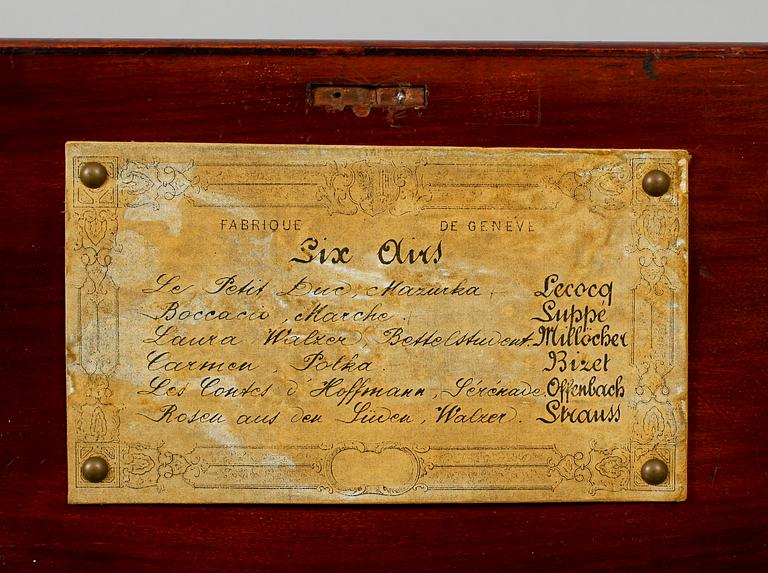 FABRIQUE DE GENÈVE
Six Airs
Le Petit Duc, Mazurka. Lecocq
Boccacio, Marche. Suppe
Laura Walzer, Bettelstudent. Millöcher
Carmen, Polka. Bizet
Les Contes d'Hoffmann, Sérénade. Offenbach
Rosen aus den Süden, Walzer. Strauss